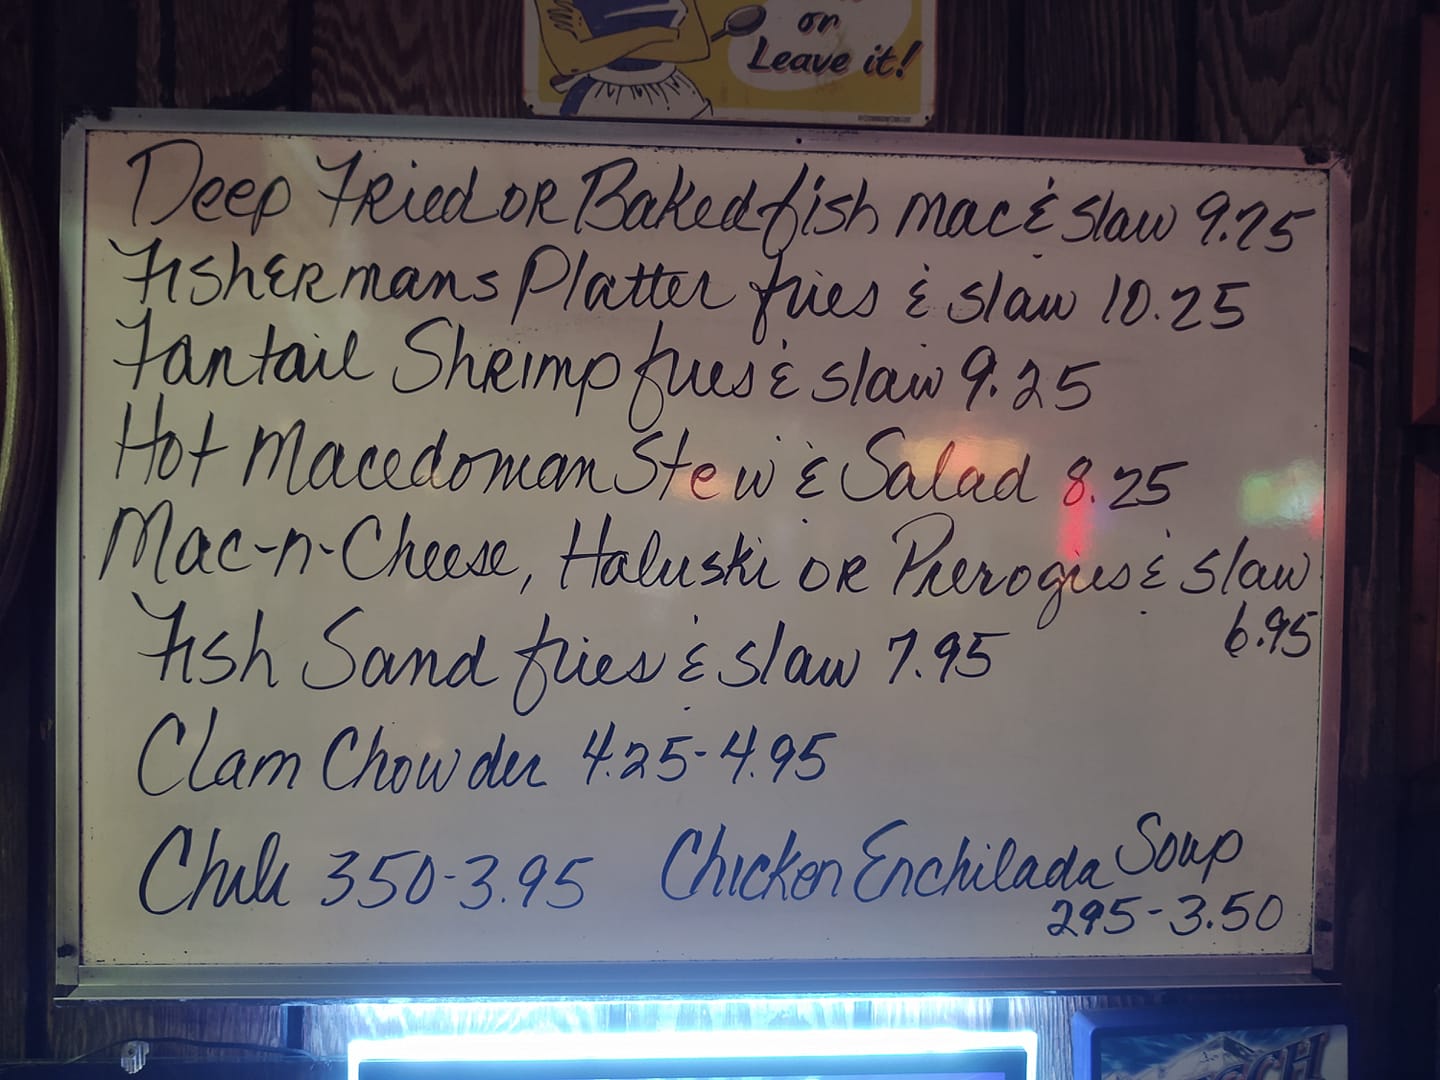 or
Leave it!
Deep Fried or Baked fish mac & slaw 9.25
Fishermans Platter fries & slaw 10.25
Fantail Shrimp fries & slaw 9.25
Hot Macedonian Stew & Salad 8.25
Mac-n-Cheese, Haluski or Pierogies & slaw
6.95
Fish Sand fries & slaw 7.95
Clam Chowder 4.25-4.95
Chili 350-3.95 Chicken Enchilada Soup
295-3.50